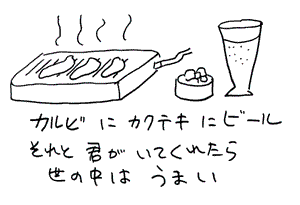 カルビ に カクテキ に ビール
それと 君が いてくれたら
世の中は うまい